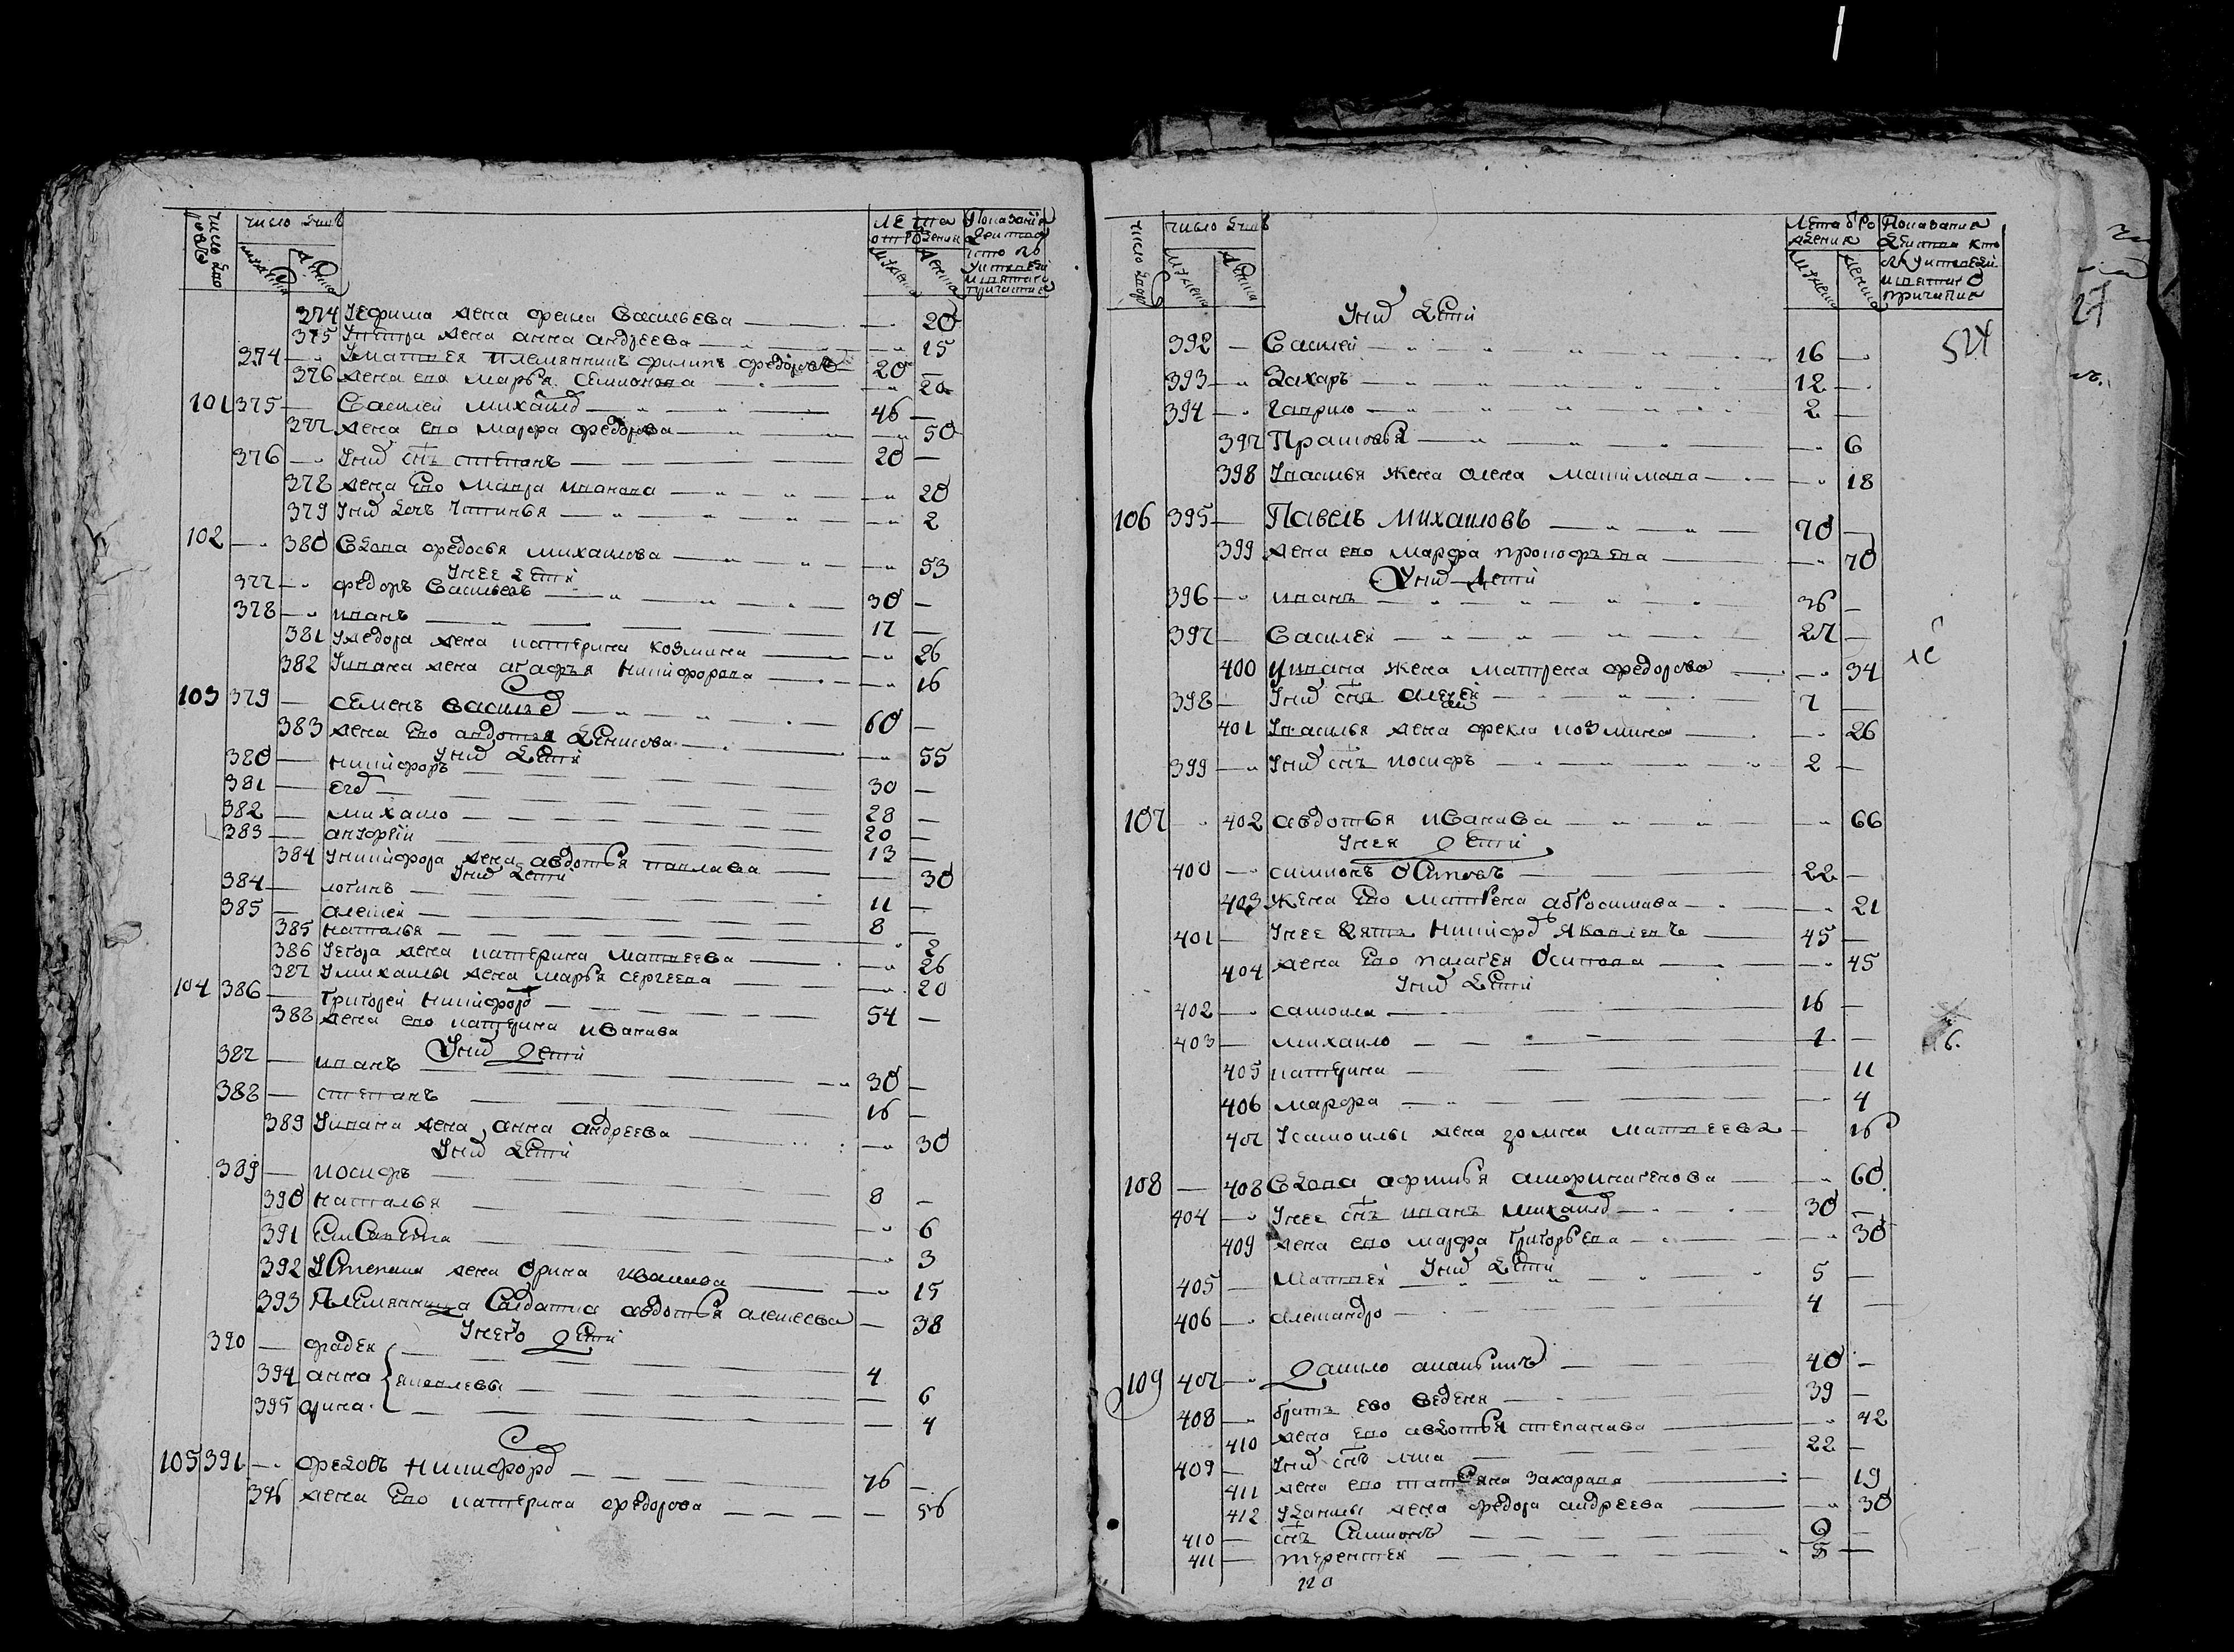 число дво ровъ
число душъ
мужеска
женска
Лета от рождения
мужеска
женска
Показания
374 У Ефима жена фекла Васильева 20
375 У Петра жена анна андреева 15
374 У Матвея племянникъ филипъ федоровъ 20
376 жена ево Марья Семионова 20
101 375 Василей михайло 46
377 жена ево марфа федорова 50
376 У нихъ снъ степанъ 20
378 жена Ево Мавра иванова 20
379 У нихъ дочь Устинья 2
102 380 Вдова федосья михаилова 53
У нее дети
377 федоръ Васильевъ 30
378 иванъ 17
381 У федора жена катерина козмина 26
382 У ивана жена агафья Никифорова 16
103 379 семенъ васильо 60
383 жена Ево авдотья Денисова 55
У нихъ дети
380 никифоръ 30
381 его 28
382 михаило 20
383 13
384 У никифора жена авдотья павлава 30
У нихъ дети
384 логинъ 11
385 алексей 8
385 наталья 2
386 У егора жена катерина матвеева 26
387 У михаилы жена марья сергеева 20
104 386 григорей никифоро 54
388 жена ево катерина иванава
У нихъ дети
387 иванъ 30
388 степанъ 16
389 У ивана жена анна андреева 30
У нихъ дети
389 иосифъ 8
390 наталья 6
391 Елисавета 3
392 У Степана жена орина ивановa 15
393 Племянница Салдатка авдотья алексеева 38
У него дети
390 фадеи 4
394 анна яковлевы 6
395 орина 4
105 391 федоръ никифоро 76
396 жена Ево катерина федорова 56
число двор
число душъ
мужеска
женска
Лета от Ро ждения
мужеска
женска
Показание
У нихъ дети
524
392 Василей 16
393 Захаръ 12
394 гаврило 2
397 Прасковья 6
398 У василья жена олена максимава 18
106 395 Павелъ михаиловъ 70
399 жена ево марфа прокофьева 70
У нихъ дети
396 иванъ 36
397 Василей 27
400 У ивана жена матрена федорова 34
398 У нихъ снъ алексей 7
401 У василья жена фекла козмина 26
399 У нихъ снъ иосифъ 2
107 402 авдотья иванава 66
У нея дети
400 симионъ Осиповъ 22
403 жена Ево матрена абросимава 21
401 У нее зять никифоръ яковлевъ 45
404 жена Ево пелагея Осипова 45
У нихъ дети
402 самоила 16
403 михаило 1
405 катерина 11
406 марфа 4
407 У самоилы жена матвеева 16
108 408 Вдова офимья 60
404 У нее снъ иванъ михайло 30
409 жена ево марфа григорьева 30
У нихъ дети
405 Матвей 5
406 александро 4
109 407 Данило ананьинъ 40
408 братъ ево 39
410 жена ево авдотья степанава 42
409 У нихъ снъ 22
411 жена ево татьяна захарава 19
412 У данилы жена федора андреева 30
410 снъ Симионъ 9
411 терентей 5